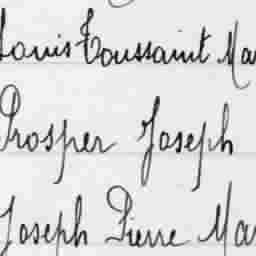 Louis Toussaint Mar
Prosper Joseph
Joseph Pierre Mar